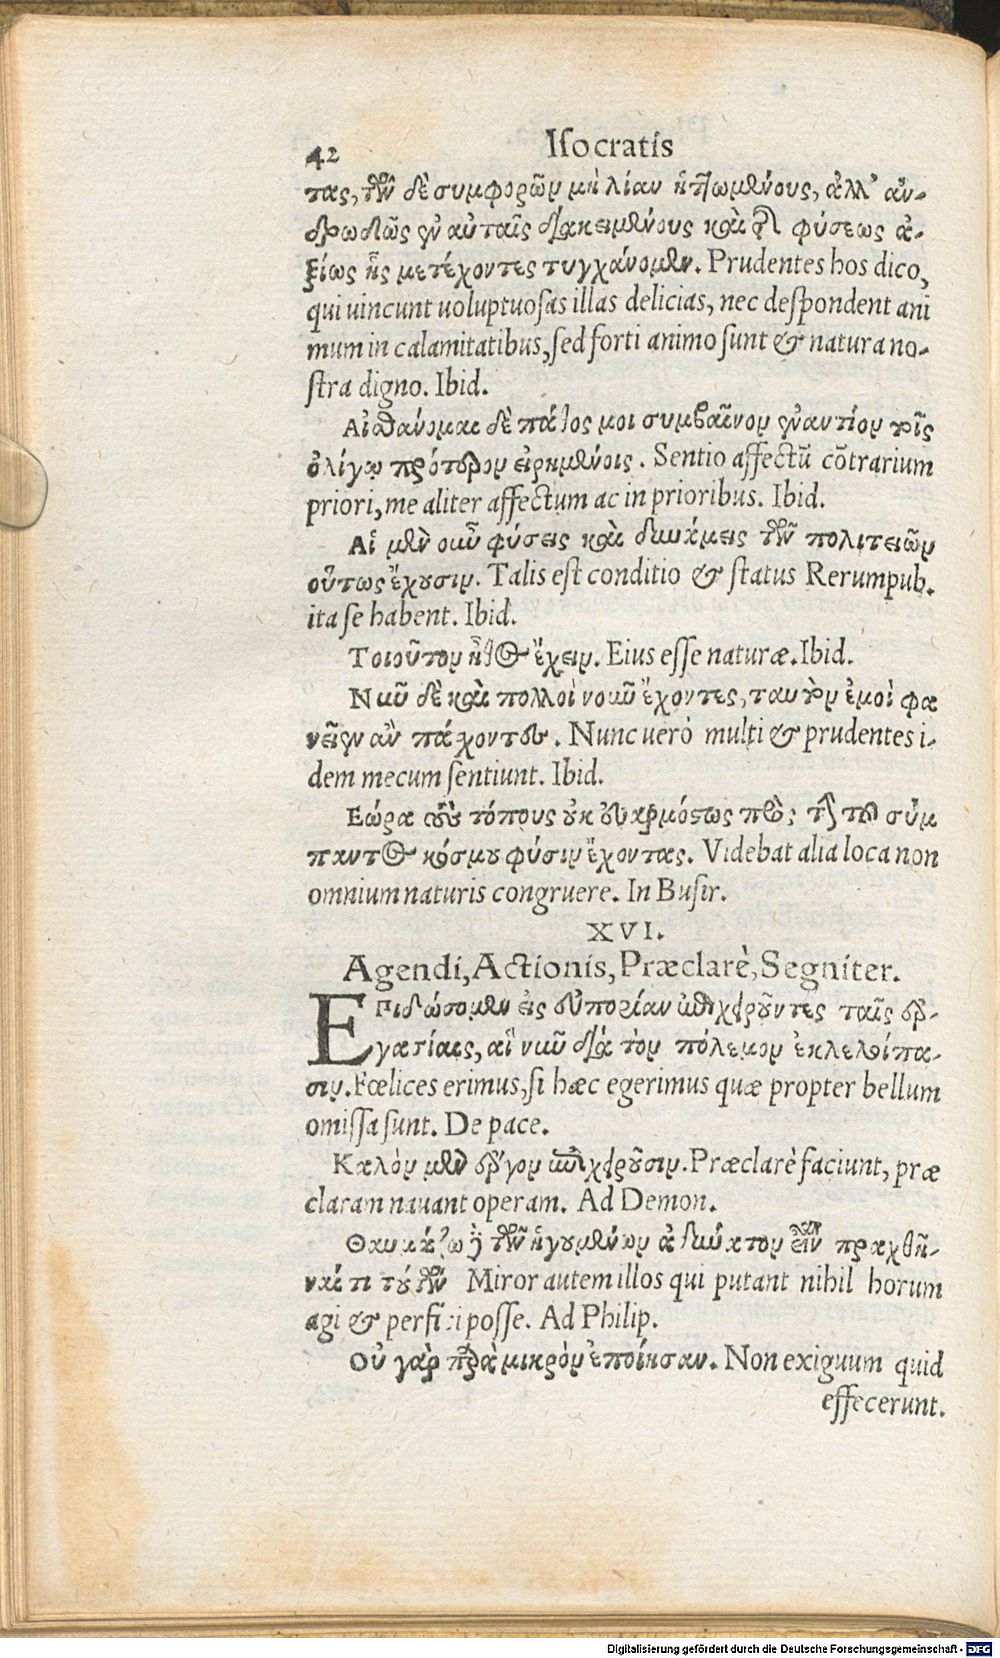 42 Isocratis
τας, τῶν δὲ συμφορῶν μὴ λίαν ἡττωμένους, ἀλλ' ἀν-
δρωδῶς ἐν αὐταῖς διακειμένους καὶ τῆς φύσεως ἀ-
ξίως ἧς μετέχοντες τυγχάνομεν. Prudentes hos dico,
qui uincunt uoluptuosas illas delicias, nec despondent ani
mum in calamitatibus, sed forti animo sunt & natura no-
stra digno. Ibid.
Αἰσθάνομαι δὲ πάθος μοι συμβαῖνον ἐναντίον τοῖς
ὀλίγῳ πρότερον εἰρημένοις. Sentio affectũ cõtrarium
priori, me aliter affectum ac in prioribus. Ibid.
Αἱ μὲν οὖν φύσεις καὶ δυνάμεις τῶν πολιτειῶν
οὕτως ἔχουσιν. Talis est conditio & status Rerumpub.
ita se habent. Ibid.
Τοιοῦτον ἦθος ἔχειν. Eius esse naturæ. Ibid.
Νῦν δὲ καὶ πολλοὶ νοῦν ἔχοντες, ταυτὸν ἐμοὶ φα
νεῖεν ἂν πάσχοντες. Nunc uerò multi & prudentes i-
dem mecum sentiunt. Ibid.
Εώρα τοὺς τόπους οὐκ εὐαρμόστως πρὸς τὴν τοῦ σύμ
παντος κόσμου φύσιν ἔχοντας. Videbat alia loca non
omnium naturis congruere. In Busir.
XVI.
Agendi, Actionis, Præclarè, Segniter.
Επιδώσομεν εἰς εὐπορίαν ἐπιχειροῦντες ταῖς ἐρ-
γασίαις, αἳ νῦν διὰ τὸν πόλεμον ἐκλελοίπα-
σιν. Fœlices erimus, si hæc egerimus quæ propter bellum
omissa sunt. De pace.
Καλὸν μὲν ἔργον ἐπιχειροῦσιν. Præclarè faciunt, præ
claram nauant operam. Ad Demon.
Θαυμάζω δὲ τῶν ἡγουμένων ἀδύνατον εἶναι πραχθῆ-
ναί τι τούτων Miror autem illos qui putant nihil horum
agi & perfici posse. Ad Philip.
Οὐ γὰρ παρὰ μικρὸν ἐποίησαν. Non exiguum quid
effecerunt.
Digitalisierung gefördert durch die Deutsche Forschungsgemeinschaft - DFG